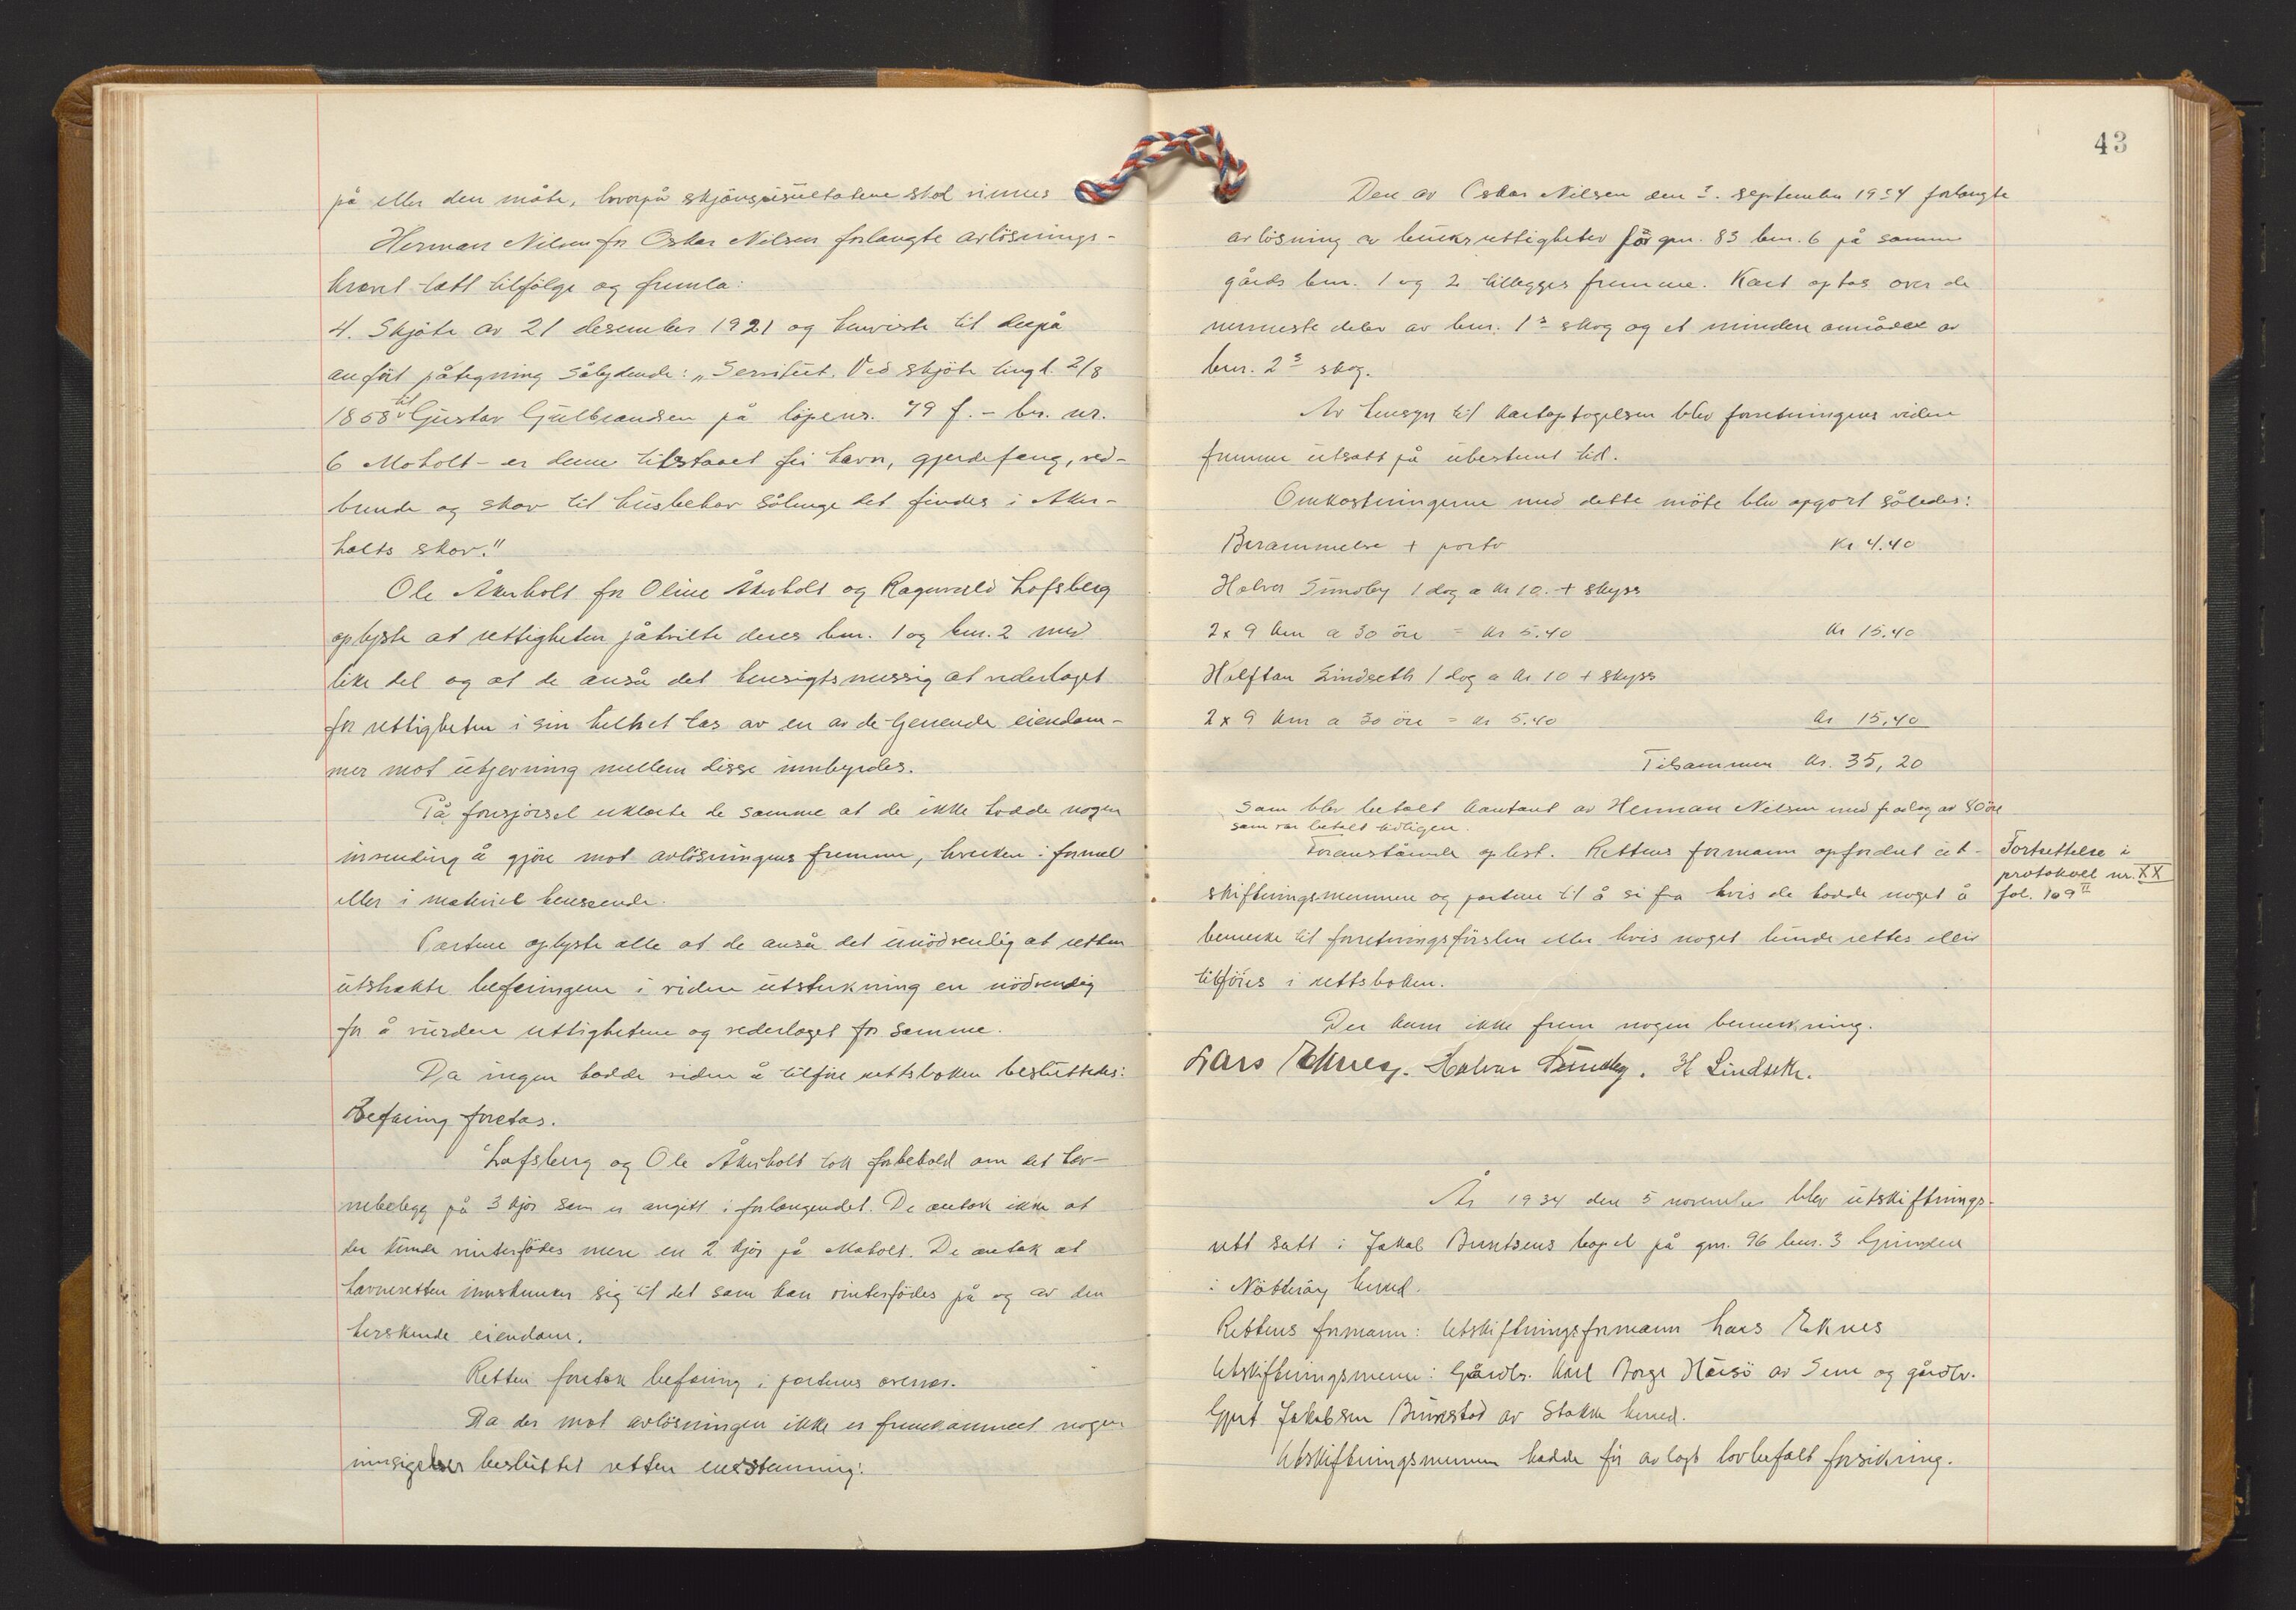 på eller den måte, hvorpå skjønsresultatene skal vinnes
Herman Nilsen for Oskar Nilsen forlangte avløsnings-
kravet tatt tilfølge og fremla:
4. Skjøte av 21 desember 1921 og henviste til derpå
anført påtegning sålydende: "Servitut. Ved skjøte tingl. 2/8
1858 til Gustav Gulbrandsen på løpenr. 79 f. - br. nr.
6 Moholt - er denne tilstaaet fri havn, gjerdefang, ved-
brende og skov til husbehov sålenge det findes i Aker-
holts skov."
Ole Åkerholt for Oline Åkerholt og Ragnvald Lofsberg
oplyste at rettigheten påhvilte deres bnr. 1 og bnr. 2 med
like del og at de anså det hensigtsmessig at vederlaget
for rettigheten i sin helhet tas av en av de tjenende eiendom-
mer mot utjevning mellem disse innbyrdes.
På forespørsel erklærte de samme at de ikke hadde nogen
invending å gjøre mot avløsningens fremme, hverken i formel
eller i materiel henseende.
Partene oplyste alle at de anså det unødvendig at retten
utstrakte befaringen i videre utstrekning en nødvendig
for å vurdere rettighetene og vederlaget for samme.
Da ingen hadde videre å tilføre rettsboken besluttedes:
Befaring foretas.
Lofsberg og Ole Åkerholt tok forbehold om det hav-
nebelegg på 3 kjør som er angitt i forlangendet. De antok ikke at
der kunde vinterfødes mere en 2 kjør på Moholt. De antok at
havneretten innskrenker sig til det som kan vinterfødes på og av den
herskende eiendom.
Retten foretok befaring i partenes overvær.
Da der mot avløsningen ikke er fremkommet nogen
innsigelser besluttet retten enstemmig:
43
Den av Oskar Nilsen den 3. september 1934 forlangte
avløsning av bruksrettigheter for gnr. 83 bnr. 6 på samme
gårds bnr. 1 og 2 tillegges fremme. Kart optas over de
nærmeste deler av bnr. 1s skog og et mindre område av
bnr. 2s skog.
Av hensyn til kartoptagelsen blev forretningens videre
fremme utsatt på ubestemt tid.
Omkostningene med dette møte blev opgjort således:
Berammelse + porto kr 4.40
Halvor Sundby 1 dag a kr 10. + skyss
2 x 9 km a 30 øre = kr 5.40 kr 15.40
Halftan Lindseth 1 dag a kr 10 + skyss
2 x 9 km a 30 øre = kr 5.40 kr 15,40
Tilsammen kr. 35,20
Som blev betalt kontant av Herman Nilsen med fradrag av 80 øre
som var betalt tidligere.
Foranstående oplest. Rettens formann opfordret ut-
skiftningsmennene og partene til å si fra hvis de hadde noget å
bemerke til forretningsførslen eller hvis noget burde rettes eller
tilføres i rettsboken.
Der kom ikke frem nogen bemerkning.
Lars Eknes. Halvor Sundby. H Lindseth.
Fortsettelse i
protokoll nr. XX
fol. 109 II
År 1934 den 5 november blev utskiftnings-
rett satt i Jakob Berntsens bopel på gnr. 96 bnr. 3 Grinden
i Nøtterøy herred.
Rettens formann: Utskiftningsformann Lars Eknes
Utskiftningsmenn: Gårdbr. Karl Borge Haesø av Sem og gårdbr.
Gjert Jakobsen Brunstad av Stokke herred.
Utskiftningsmennene hadde før avlagt lovbefalt forsikring.